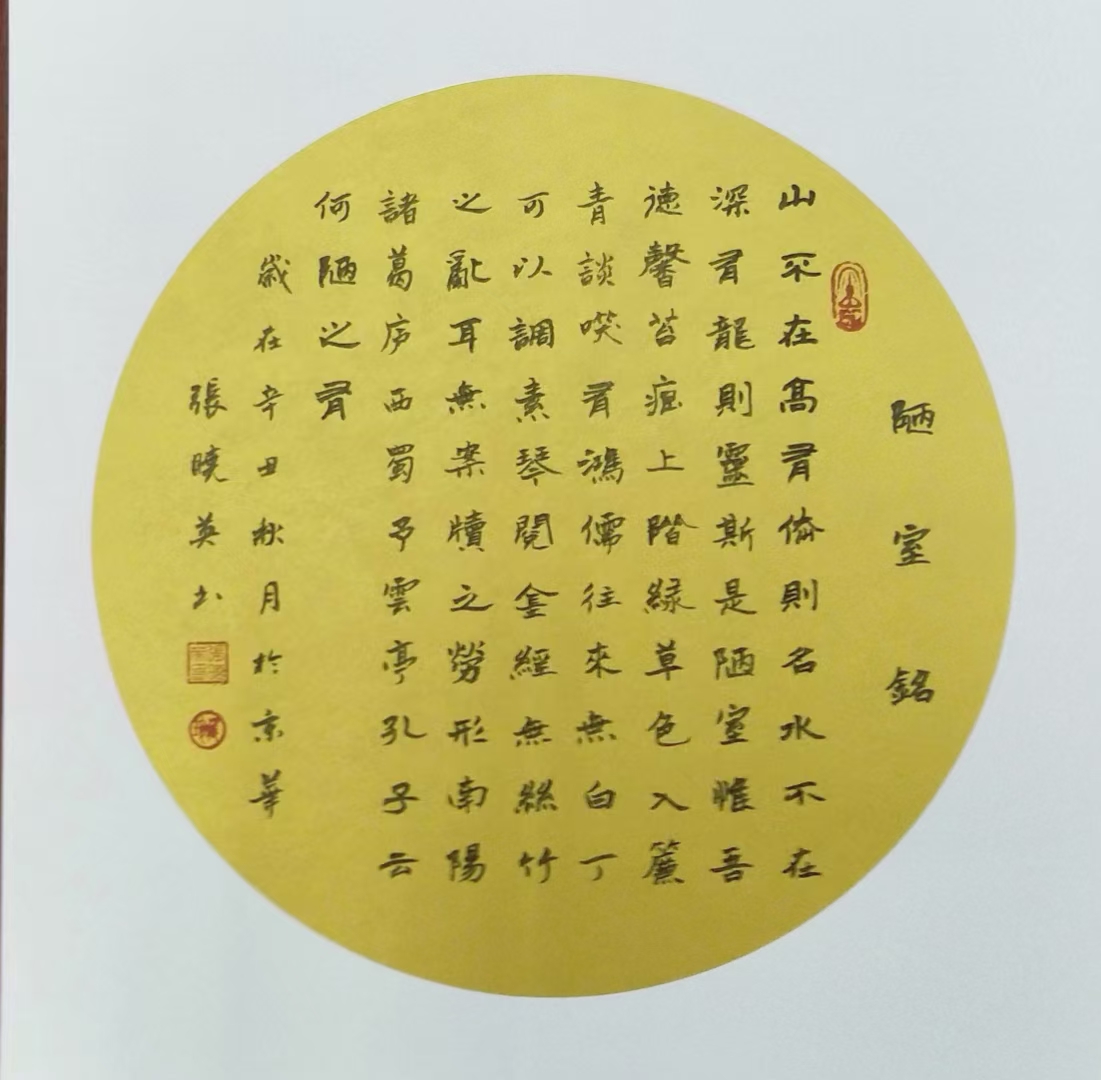 陋室銘
山不在高有僊則名水不在
深有龍則靈斯是陋室惟吾
德馨苔痕上階緑草色入簾
青談笑有鴻儒往來無白丁
可以調素琴閱金經無絲竹
之亂耳無案牘之勞形南陽
諸葛庐西蜀子雲亭孔子云
何陋之有
歲在辛丑秋月於京華
張曉英书